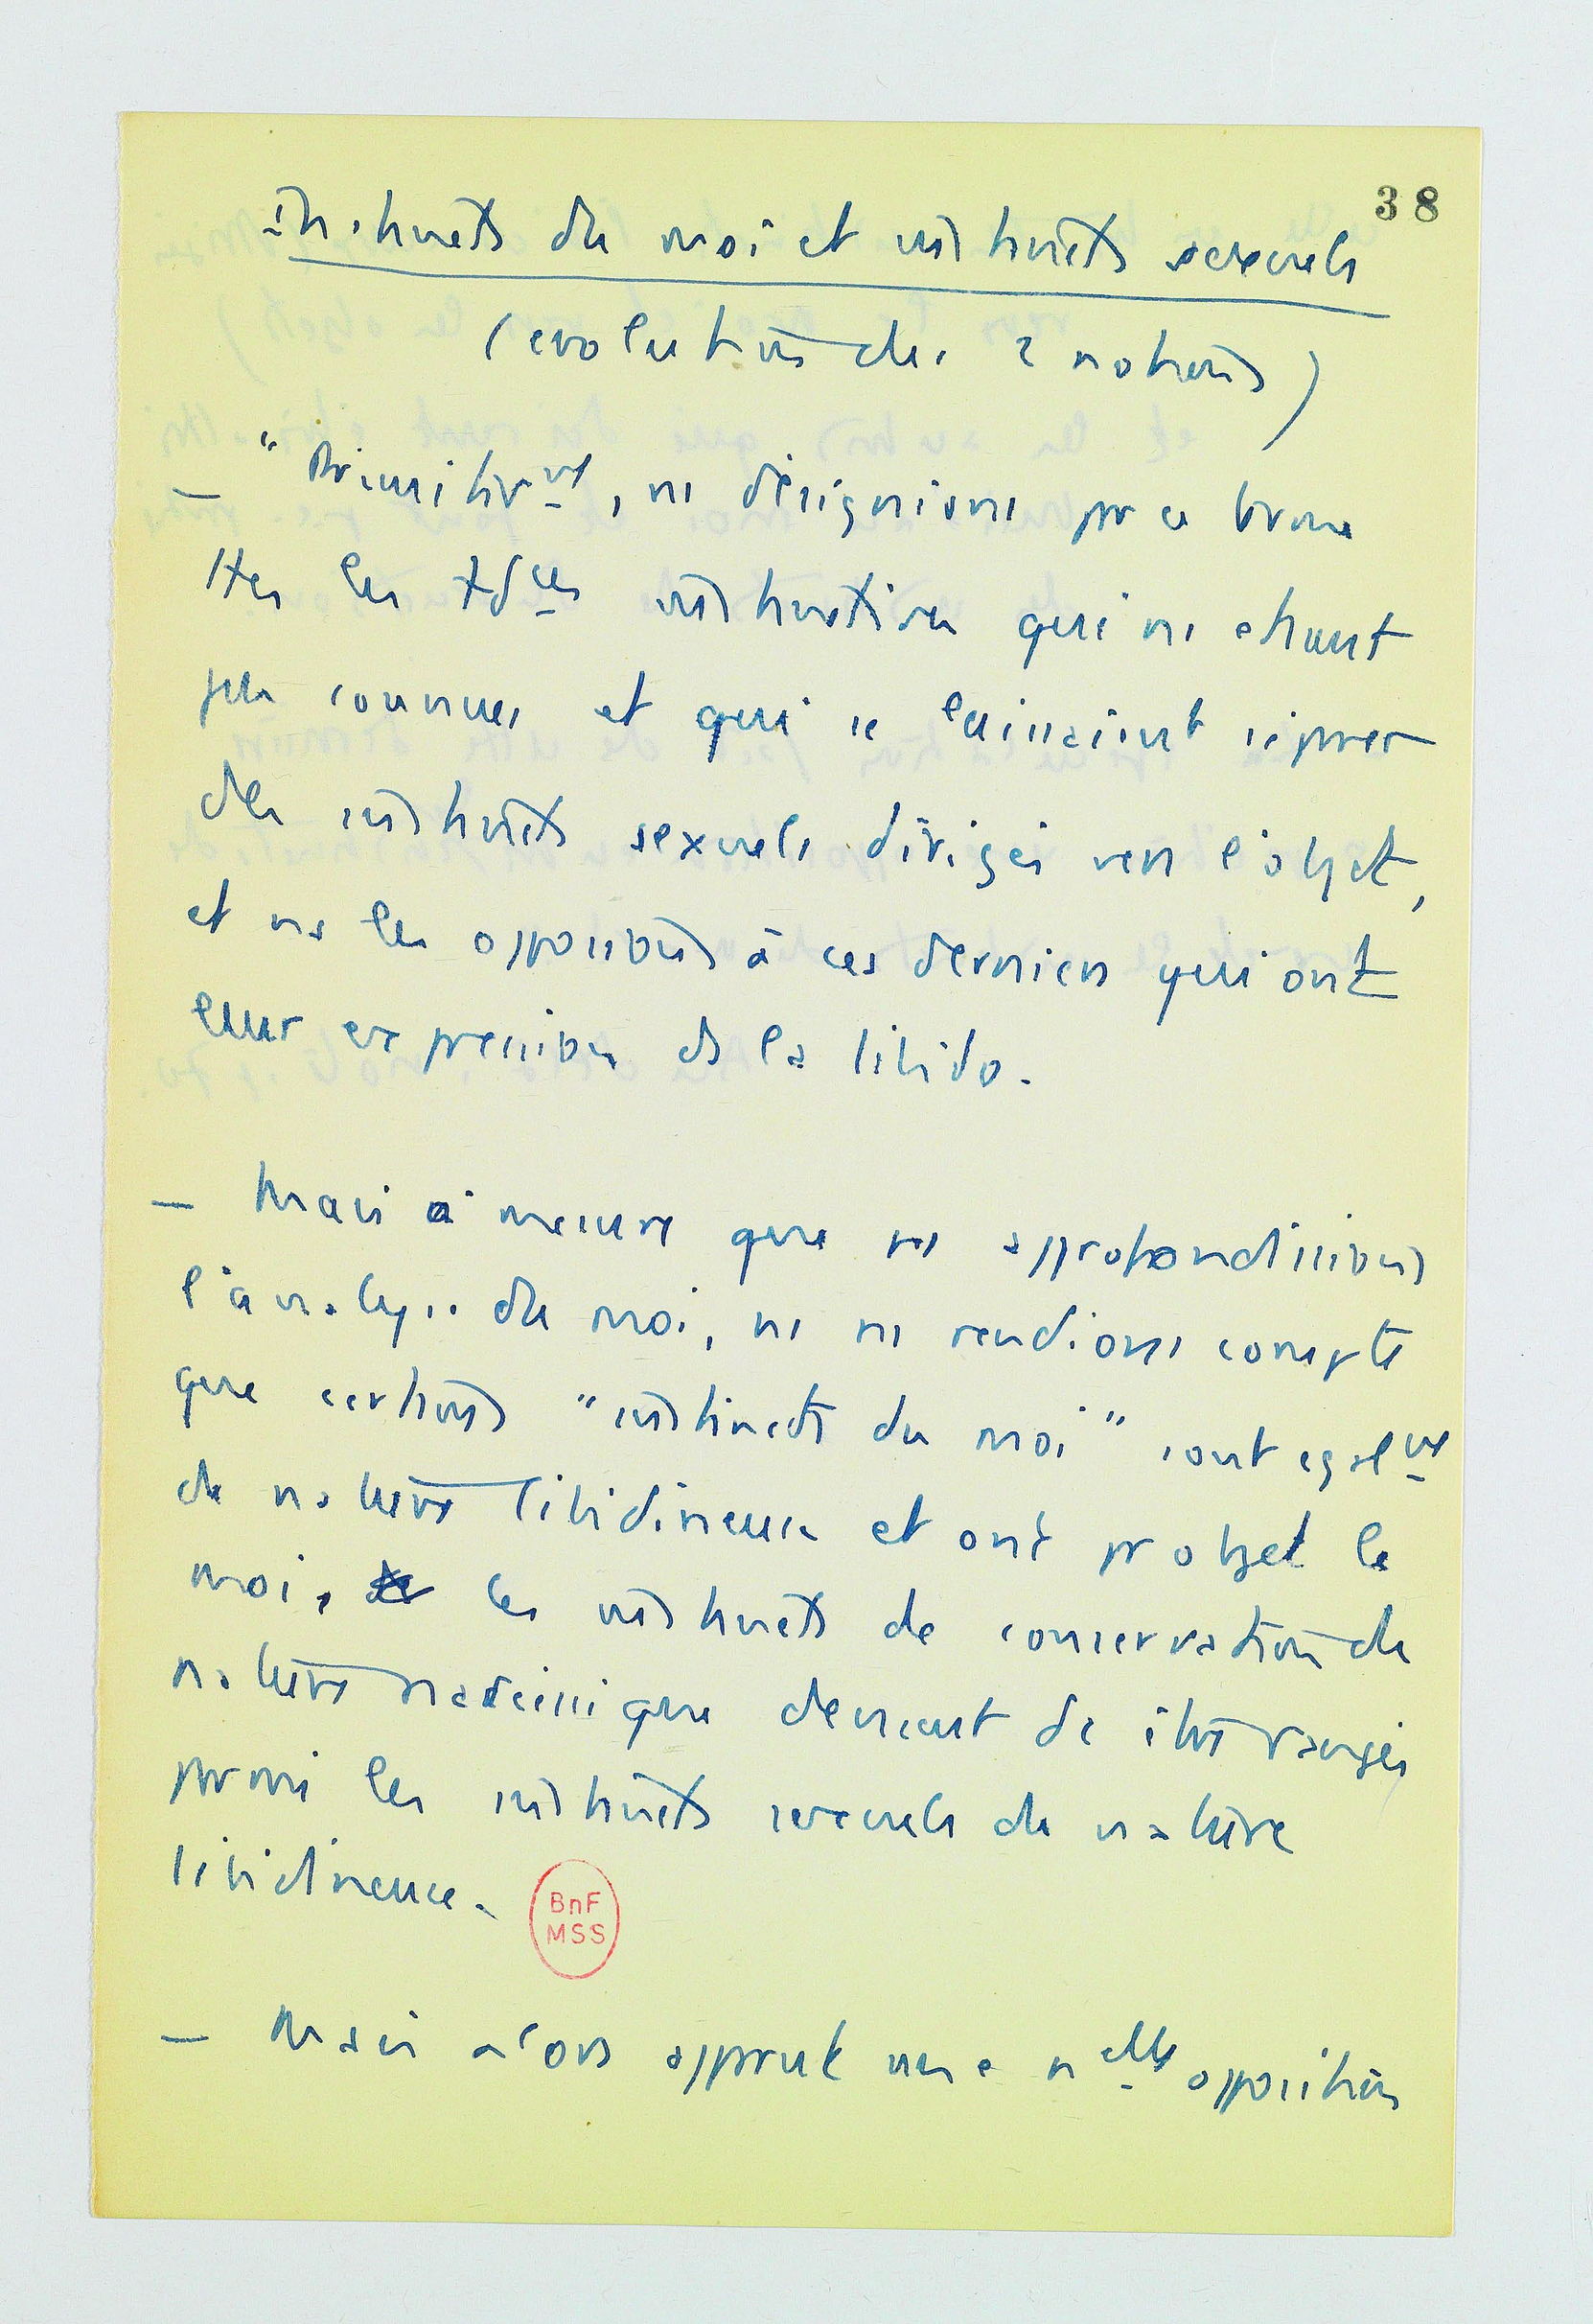 38
Instincts du moi et instincts sexuels
(evolution des 2 notions)
— "Primitivt, ns désignions pr ce terme
ttes les tdces instinctives qui ns etaient
peu connues et qui se laissaient séparer
des instincts sexuels dirigés vers l'objet,
et ns les opposions à ces derniers qui ont
leur expression ds la libido.
— Mais à mesure que ns approfondissions
l'analyse du moi, ns ns rendions compte
que certains "instincts du moi" sont egalt
de nature libidineuse et ont pr objet le
moi, les instincts de conservation de
nature narcissique devaient dc être rangés
parmi les instincts sexuels de nature
libidineuse.
BnF
MSS
— Mais alors apparut une nelle opposition